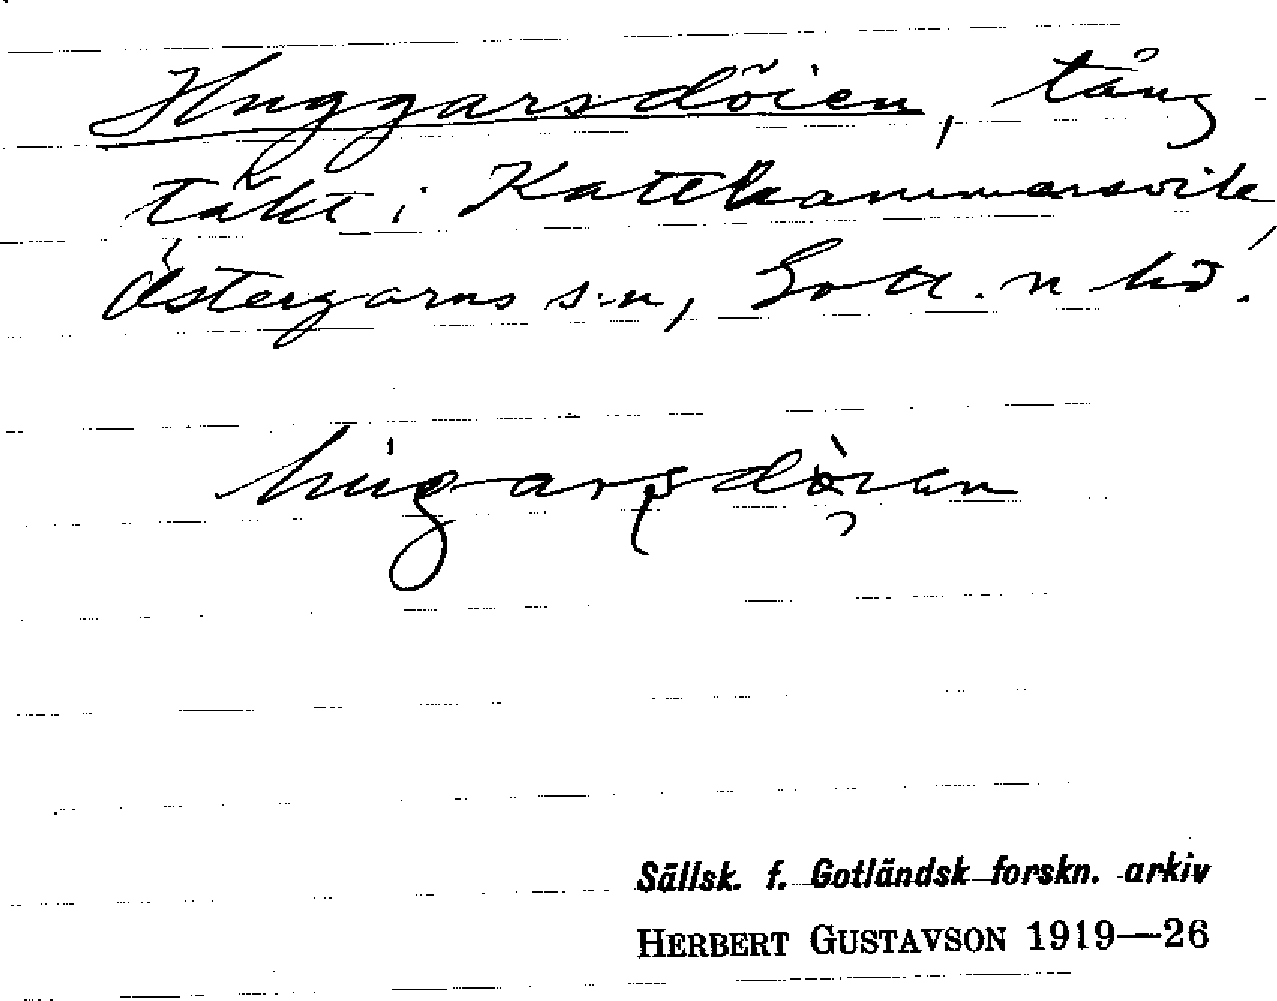 Huggarsdöien, tång-
täkt i Katthammarsvik,
Östergarns s:n, Gotl. n hd.
hugarsdöien
Sällsk. f. Gotländsk forskn. arkiv
HERBERT GUSTAVSON 1919—26